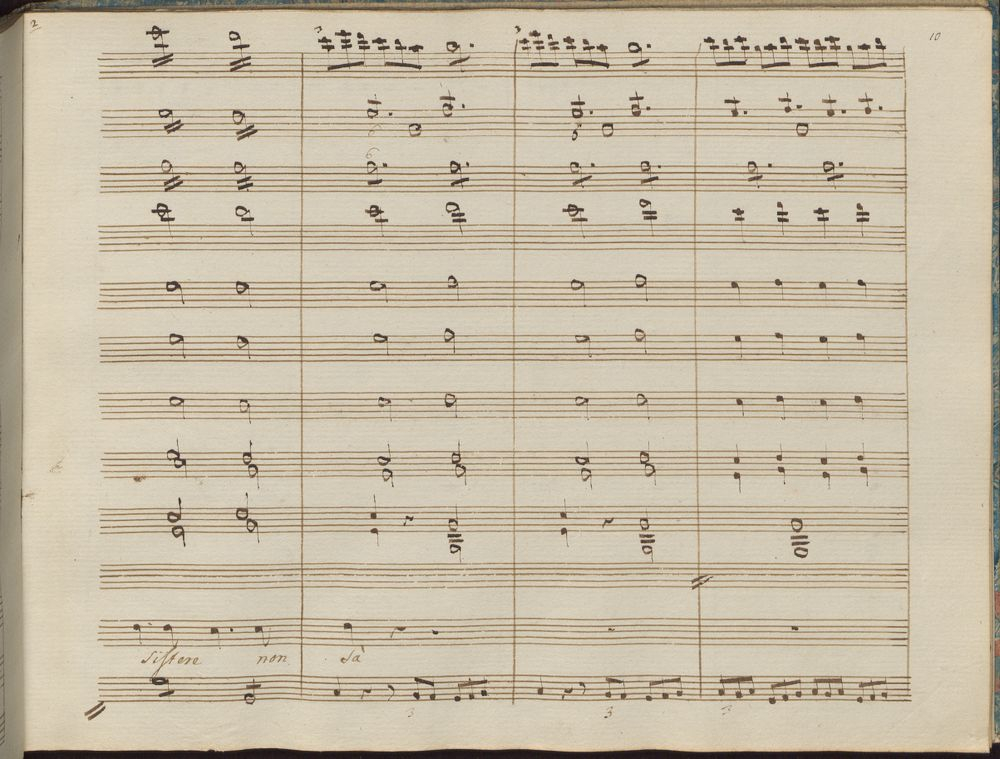 2
10
3
3
6
6
sistere non sà
3
3
3